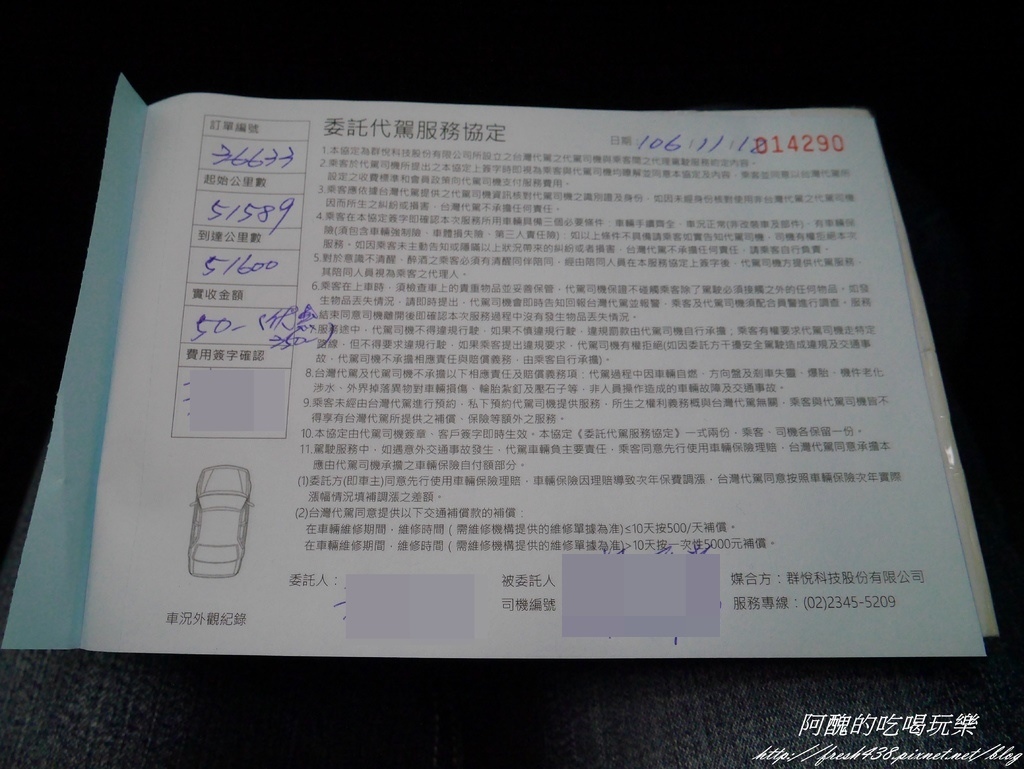 訂單編號
36633
起始公里數
51589
到達公里數
51600
實收金額
50-
費用簽字確認
委託代駕服務協定
日期: 106/11/18
014290
1.本協定為群悅科技股份有限公司所設立之台灣代駕之代駕司機與乘客間之代理駕駛服務約定內容。
2.乘客於代駕司機所提出之本協定上簽字時即視為乘客與代駕司機均瞭解並同意本協定及內容,乘客並同意以台灣代駕所
設定之收費標準和會員政策向代駕司機支付服務費用。
3.乘客應依據台灣代駕提供之代駕司機資訊核對代駕司機之識別證及身份,如因未經身份核對使用非台灣代駕代駕司機
因而所生之糾紛或損害,台灣代駕不承擔任何責任。
4.乘客在本協定簽字即確認本次服務所用車輛具備三個必要條件:車輛手續齊全、車況正常(非改裝車及部件)、有車輛保
險(須包含車輛強制險、車體損失險、第三人責任險),如以上條件不具備請乘客如實告知代駕司機,司機有權拒絕本次
服務。如因乘客未主動告知或隱瞞以上狀況帶來的糾紛或者損害,台灣代駕不承擔任何責任,請乘客自行負責。
5.對於意識不清醒、醉酒之乘客必須有清醒同伴陪同,經由陪同人員在本服務協定上簽字後,代駕司機方提供代駕服務,
其陪同人員視為乘客之代理人。
6.乘客在上車時,須檢查車上的貴重物品並妥善保管,代駕司機保證不碰觸乘客除了駕駛必須接觸之外的任何物品。如發
生物品丟失情況,請即時提出,代駕司機會即時告知回報台灣代駕並報警,乘客及代駕司機須配合員警進行調查。服務
結束同意司機離開後即確認本次服務過程中沒有發生物品丟失情況。
服務途中,代駕司機不得違規行駛,如果不慎違規行駛,違規罰款由代駕司機自行承擔;乘客有權要求代駕司機走特定
路線,但不得要求違規行駛,如果乘客提出違規要求,代駕司機有權拒絕(如因委託方干擾安全駕駛造成違規及交通事
故,代駕司機不承擔相應責任與賠償義務,由乘客自行承擔)。
8.台灣代駕及代駕司機不承擔以下相應責任及賠償義務項:代駕過程中因車輛自燃、方向盤及剎車失靈、爆胎、機件老化
涉水、外界掉落異物對車輛損傷、輪胎紮釘及壓石子等,非人員操作造成的車輛故障及交通事故。
9.乘客未經由台灣代駕進行預約,私下預約代駕司機提供服務,所生之權利義務概與台灣代駕無關,乘客與代駕司機皆不
得享有台灣代駕所提供之補償、保險等額外之服務。
10.本協定由代駕司機簽章、客戶簽字即時生效。本協定《委託代駕服務協定》一式兩份,乘客、司機各保留一份。
11.駕駛服務中,如遇意外交通事故發生,代駕車輛負主要責任,乘客同意先行使用車輛保險理賠,台灣代駕同意承擔本
應由代駕司機承擔之車輛保險自付額部分。
(1)委託方(即車主)同意先行使用車輛保險理賠,車輛保險因理賠導致次年保費調漲,台灣代駕同意按照車輛保險次年實際
漲幅情況填補調漲之差額。
(2)台灣代駕同意提供以下交通補償款的補償:
在車輛維修期間,維修時間(需維修機構提供的維修單據為准)≤10天按500/天補償。
在車輛維修期間,維修時間(需維修機構提供的維修單據為准)>10天按一次性5000元補償。
委託人:
被委託人
司機編號
媒合方:群悅科技股份有限公司
服務專線:(02)2345-5209
車況外觀紀錄
阿醜的吃喝玩樂
http://fresh438.pixnet.net/blog